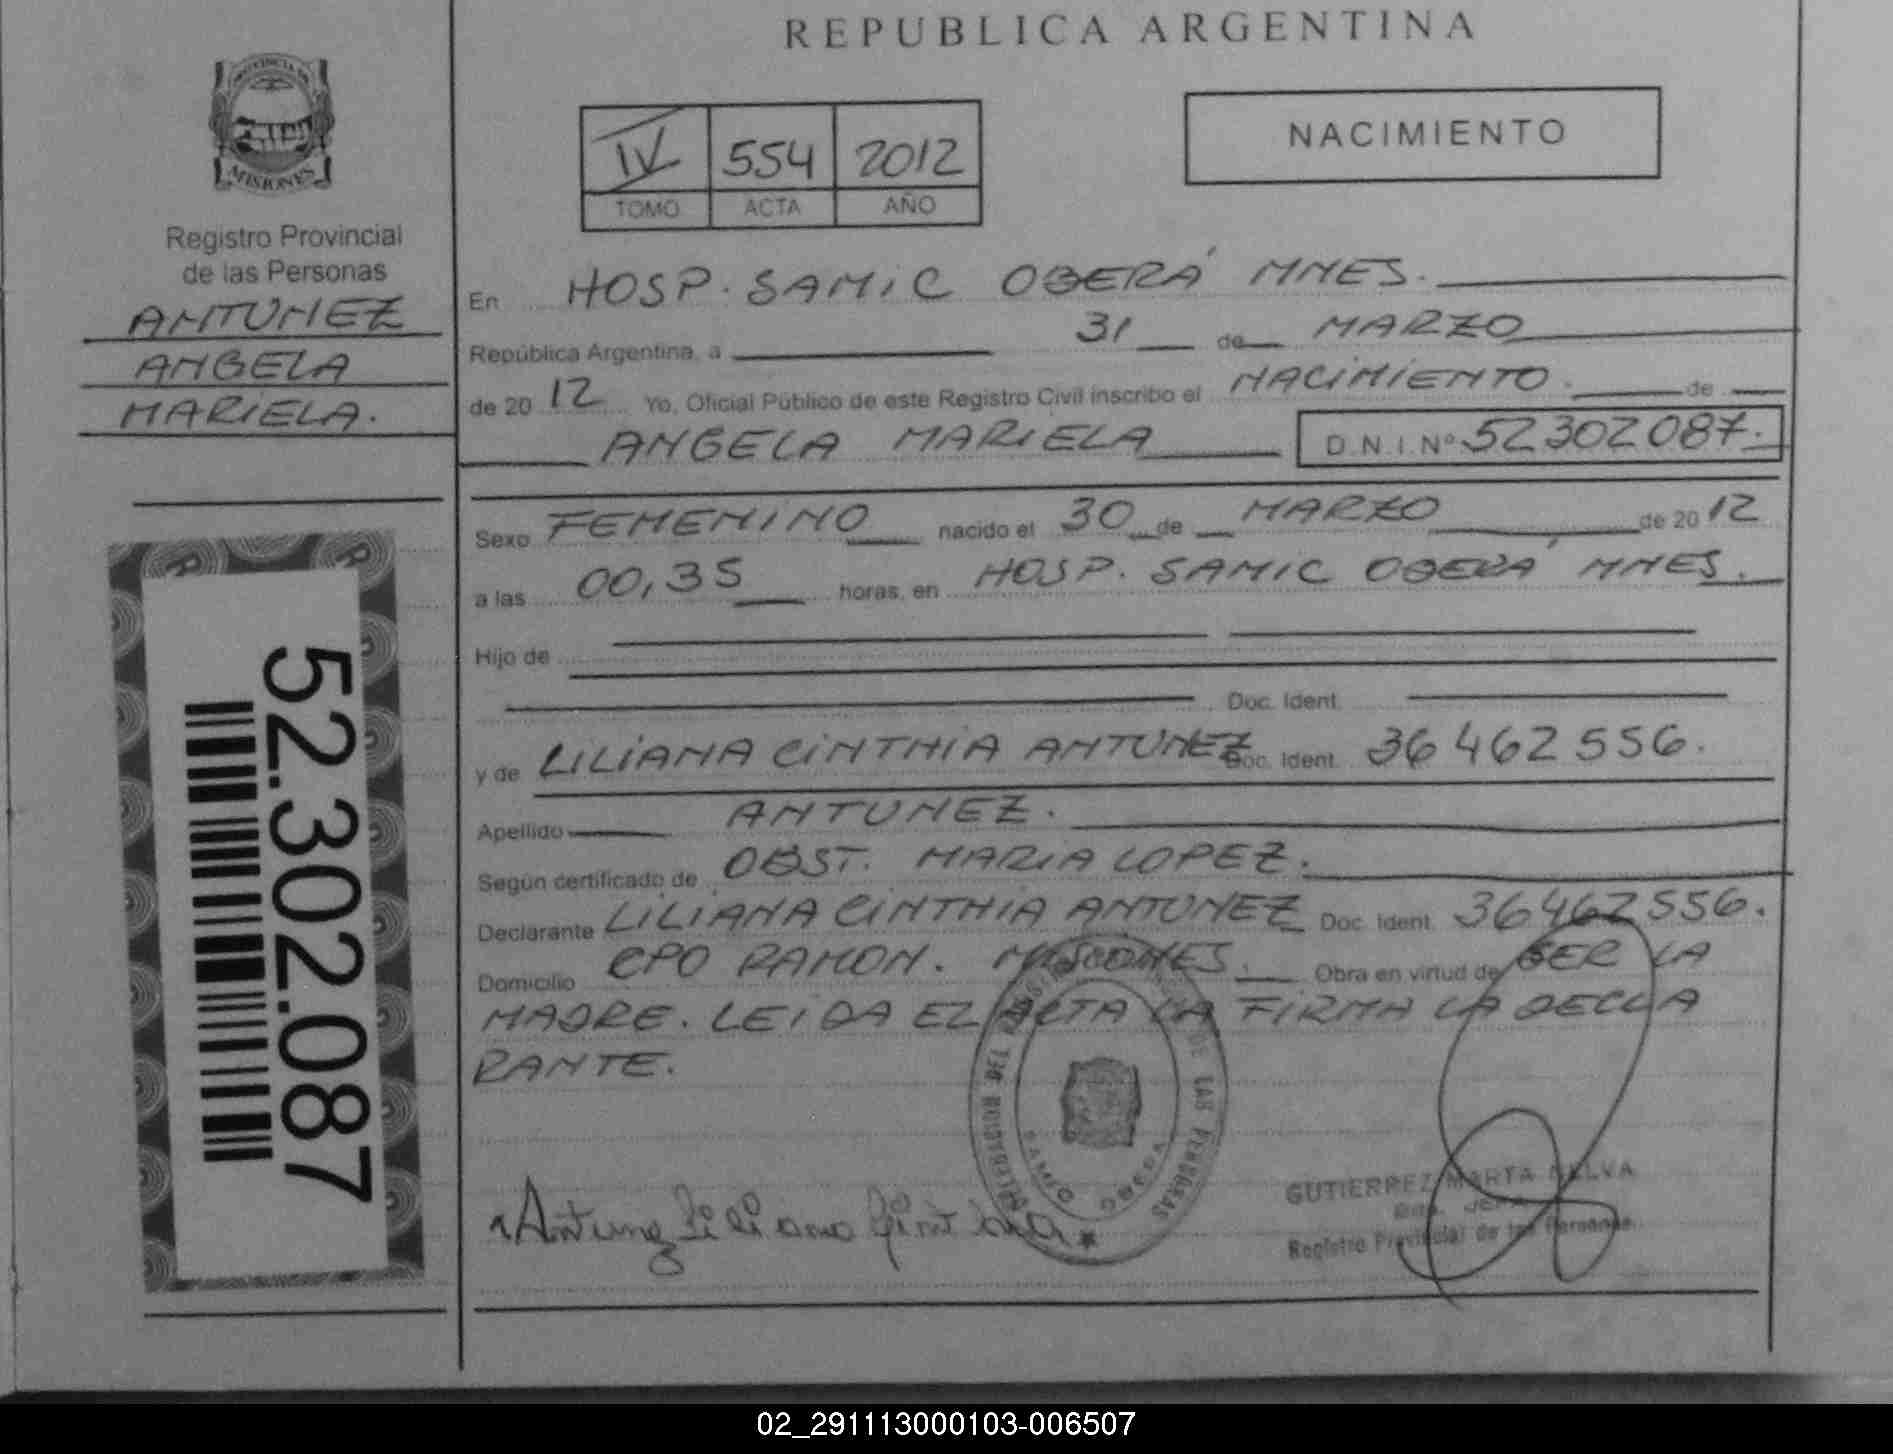 REPUBLICA ARGENTINA
PROVINCIA DE
MISIONES
Registro Provincial
de las Personas
ANTUNEZ
ANGELA
MARIELA.
52.302.087
IV 554 2012
TOMO ACTA AÑO
NACIMIENTO
En HOSP. SAMIC OBERÁ MNES.
República Argentina, a 31 de MARZO
de 2012 Yo, Oficial Público de este Registro Civil inscribo el NACIMIENTO. de
ANGELA MARIELA D.N.I. Nº 52302087.
Sexo FEMENINO nacido el 30 de MARZO de 2012
a las 00,35 horas, en HOSP. SAMIC OBERÁ MNES.
Hijo de
Doc. Ident.
y de LILIANA CINTHIA ANTUNEZ Doc. Ident. 36462556.
Apellido ANTUNEZ.
Según certificado de OBST. MARIA LOPEZ.
Declarante LILIANA CINTHIA ANTUNEZ Doc. Ident. 36462556.
Domicilio CPO RAMON. MISIONES. Obra en virtud de SER LA
MADRE. LEIDA EL ACTA LA FIRMA LA DECLA
RANTE.
DE LAS PERSONAS
SAMIC OBERA
Antunez Liliana Cinthia
GUTIERREZ MARTA NELVA
Registro Provincial de las Personas
02_291113000103-006507